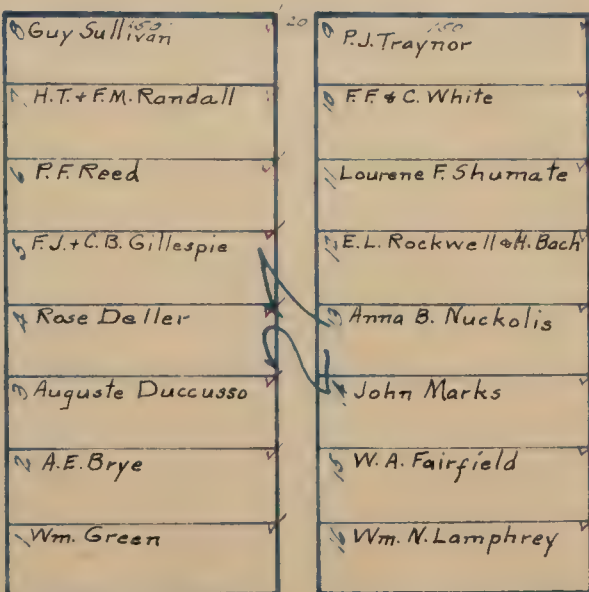 150
8 Guy Sullivan
7 H.T. + F.M. Randall
6 P.F. Reed
5 F.J. + C.B. Gillespie
4 Rose Deller
3 Auguste Duccusso
2 A.E. Brye
1 Wm. Green
20
150
9 P.J. Traynor
10 F.F. & C. White
11 Lourene F. Shumate
12 E.L. Rockwell & H. Bach
13 Anna B. Nuckolis
14 John Marks
15 W.A. Fairfield
16 Wm. N. Lamphrey